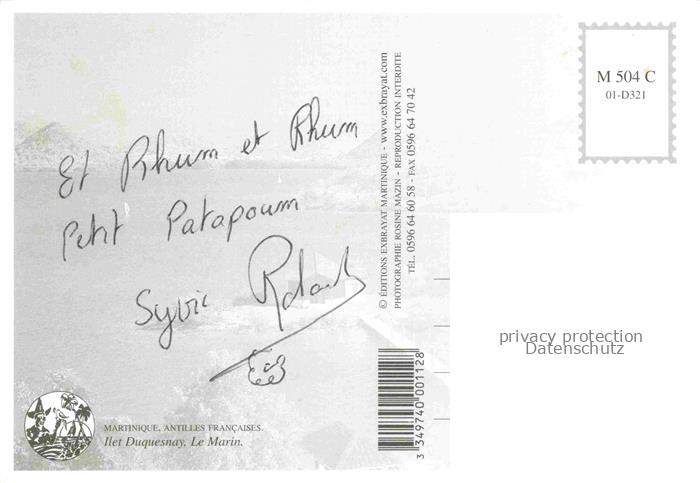 Et Rhum et Rhum
Petit Patapoum
Sylvie
© ÉDITIONS EXBRAYAT MARTINIQUE - www.exbrayat.com
PHOTOGRAPHIE ROSINE MAZIN - REPRODUCTION INTERDITE
TÉL. 0596 64 60 58 - FAX 0596 64 70 42
M 504 C
01-D321
privacy protection
Datenschutz
3 349740 001128
MARTINIQUE, ANTILLES FRANÇAISES.
Ilet Duquesnay, Le Marin.